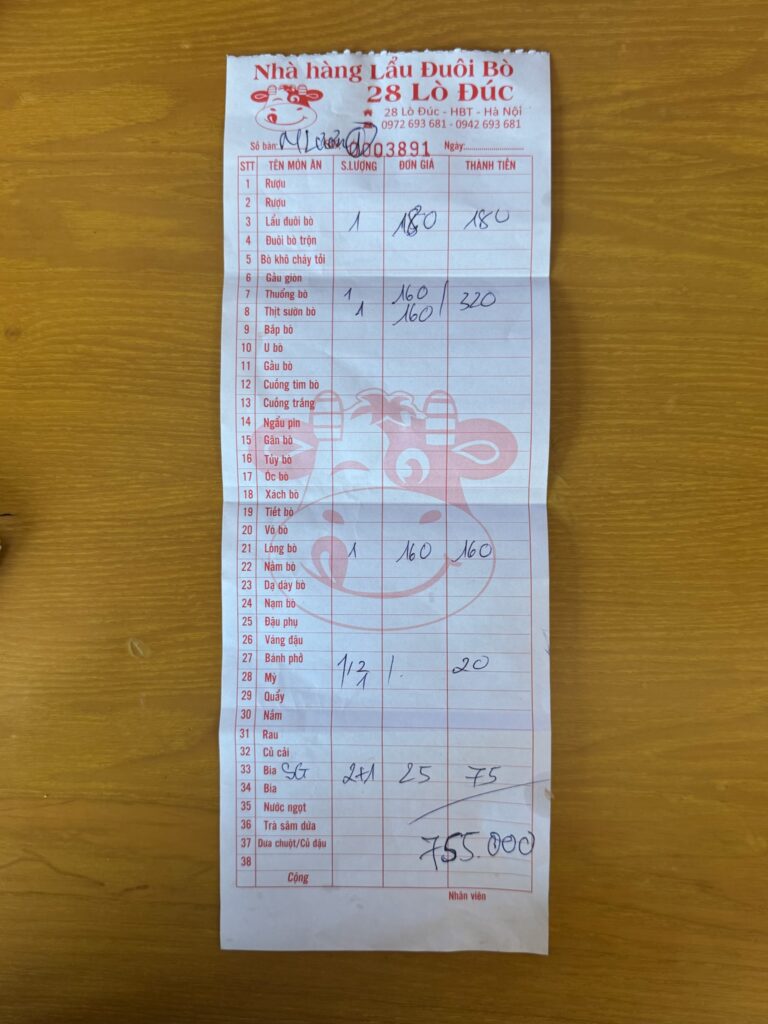 Nhà hàng Lẩu Đuôi Bò
28 Lò Đúc
28 Lò Đúc - HBT - Hà Nội
0972 693 681 - 0942 693 681
Số bàn: 0003891 Ngày:
STT TÊN MÓN ĂN S.LƯỢNG ĐƠN GIÁ THÀNH TIỀN
1 Rượu
2 Rượu
3 Lẩu đuôi bò 1 180 180
4 Đuôi bò trộn
5 Bò khô cháy tỏi
6 Gầu giòn
7 Thuống bò 1 160 320
8 Thịt sườn bò 1 160
9 Bắp bò
10 U bò
11 Gầu bò
12 Cuống tim bò
13 Cuống trắng
14 Ngẩu pín
15 Gân bò
16 Tủy bò
17 Óc bò
18 Xách bò
19 Tiết bò
20 Vó bò
21 Lòng bò 1 160 160
22 Nầm bò
23 Dạ dày bò
24 Nạm bò
25 Đậu phụ
26 Váng đậu
27 Bánh phở 20
28 Mỳ 1
29 Quẩy
30 Nấm
31 Rau
32 Củ cải
33 Bia SG 2+1 25 75
34 Bia
35 Nước ngọt
36 Trà sâm dứa
37 Dưa chuột/Củ đậu 755.000
38
Cộng
Nhân viên